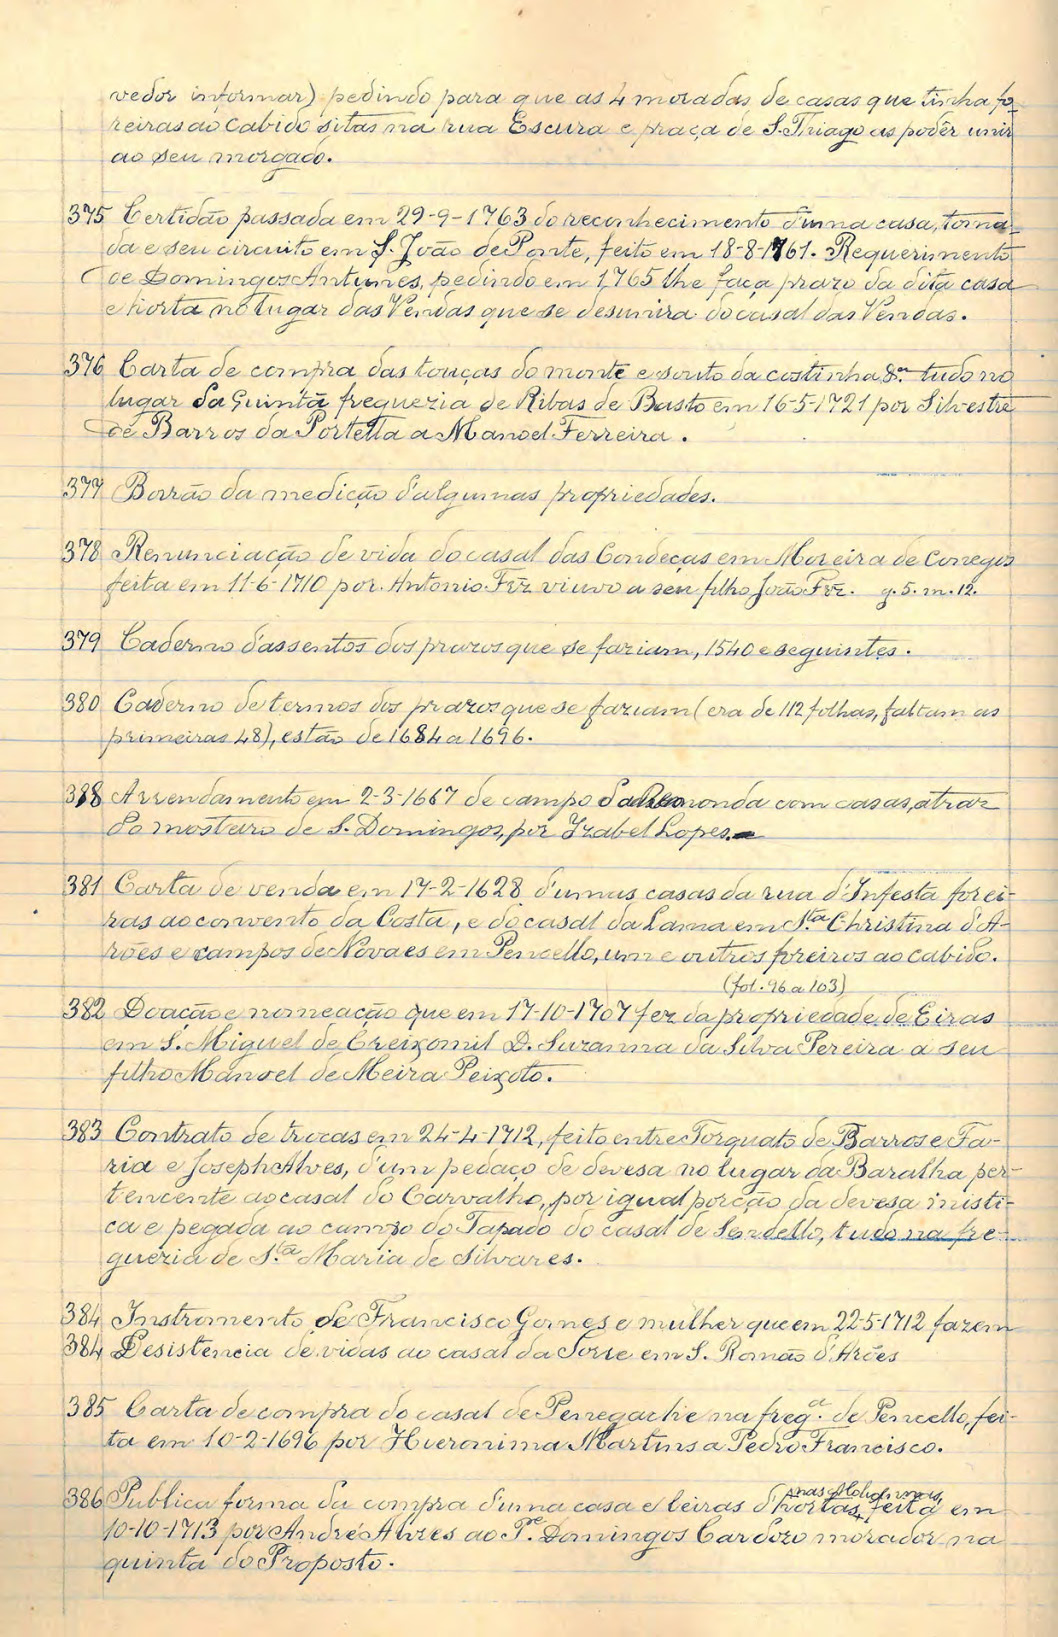 vedor informar) pedindo para que as 4 moradas de casas que tinha fo-
reiras ao Cabido sitas na rua Escura e praça de S. Thiago as podêr unir
ao seu morgado.
375 Certidão passada em 29-9-1763 do reconhecimento d'uma casa, torna-
da e seu circuito em S. João de Ponte, feito em 18-8-1761. Requerimento
de Domingos Antunes, pedindo em 1765 lhe faça prazo da dita casa
e horta no lugar das Vendas que se desunira do casal das Vendas.
376 Carta de compra das touças do monte e souto da costinha &.ª tudo no
lugar da Quintã freguezia de Ribas de Basto em 16-5-1721 por Silvestre
de Barros da Portella a Manoel Ferreira.
377 Borrão da medição d'algumas propriedades.
378 Renunciação de vida do casal das Condeças em Moreira de Conegos
feita em 11-6-1710 por Antonio Frz viuvo a seu filho João Frz. g. 5. m. 12.
379 Caderno d'assentos dos prazos que se faziam, 1540 e seguintes.
380 Caderno de termos dos prazos que se faziam (era de 112 folhas, faltam as
primeiras 48), estão de 1684 a 1696.
388 Arrendamento em 2-3-1667 de campo da Remonda com casas, atraz
do mosteiro de S. Domingos, por Izabel Lopes.
381 Carta de venda em 17-2-1628 d'umas casas da rua d'Infesta forei-
ras ao convento da Costa, e do casal da Lama em Sta Christina d'A-
rões e campos de Novaes em Pencello, um e outros foreiros ao cabido.
(fol. 96 a 103)
382 Doação e nomeação que em 17-10-1707 fez da propriedade de Eiras
em S. Miguel de Creixomil D. Suzanna da Silva Pereira a seu
filho Manoel de Meira Peixoto.
383 Contrato de trocas em 24-4-1712, feito entre Torquato de Barros e Fa-
ria e Joseph Alves, d'um pedaço de devesa no lugar da Baralha per-
tencente ao casal do Carvalho, por igual porção da devesa misti-
ca e pegada ao campo do Tapado do casal de Sendello, tudo na fre-
guezia de S.ta Maria de Silvares.
384 Instromento de Francisco Gomes e mulher que em 22-5-1712 fazem
384 Desistencia de vidas ao casal da Torre em S. Romão d'Arões
385 Carta de compra do casal de Penegache na freg.ª de Pencello, fei-
ta em 10-2-1696 por Hieronima Martins a Pedro Francisco.
386 Publica forma da compra d'uma casa e leiras d'hortas, feita em
10-10-1713 por André Alvres ao Pe. Domingos Cardozo morador na
quinta do Proposto.